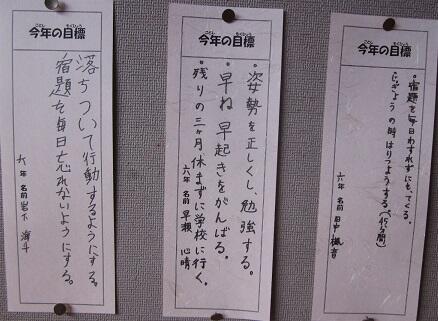 ことし もくひょう
今年の目標
落ちついて行動するようにする。
宿題を毎日忘れないようにする。
六年 名前 岩下
ことし もくひょう
今年の目標
・姿勢を正しくし、勉強する。
・早ね早起きをがんばる。
・残りの三ヶ月休まずに学校に行く。
六年 名前 早瀬 心晴
ことし もくひょう
今年の目標
・宿題を毎日わすれずにもってくる。
の時はりつようする(45分間)
六年 名前 田中 楓音